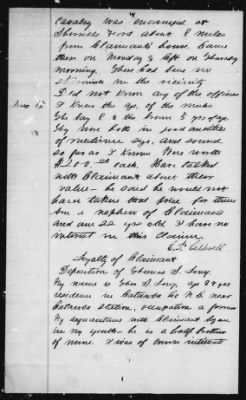 4
Cavalry was encamped at
Sherrills Ford about 8 miles
from Claimants house. Came
there on Monday & left on Thursday
morning. There had been no
in vicinity
I did not know any of the officers
I knew the age of the mules
the bay 8 & the brown 5 yrs of age
they were both in good condition
of medium size, and sound
so far as I know. Were worth
$200.00 each. Have talked
with Claimant about their
value - he said he would not
have taken that price for them
Am a nephew of Claimant
and am 22 yrs old. I have no
interest in this claim.
Loyalty of Claimant
Deposition of Thomas S.
My name is Thos S. age 29 years
residence in Catawba Co N.C. near
Catawba Station, occupation a farmer
My acquaintance with Claimant began
in my youth he is a half brother
of mine. I was of